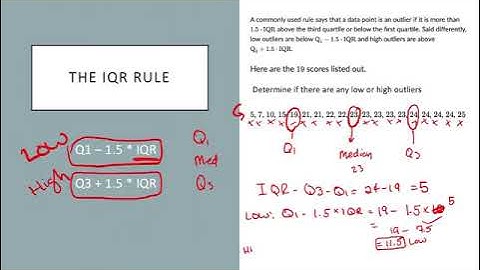 THE IQR RULE
LOW
Q1 – 1.5 * IQR
High
Q3 + 1.5 * IQR
Q1
Med
Q3
A commonly used rule says that a data point is an outlier if it is more than
1.5 · IQR above the third quartile or below the first quartile. Said differently,
low outliers are below Q₁ − 1.5 · IQR and high outliers are above
Q₃ + 1.5 · IQR.
Here are the 19 scores listed out.
Determine if there are any low or high outliers
5, 7, 10, 15, 19, 21, 21, 22, 22, 23, 23, 23, 23, 23, 24, 24, 24, 24, 25
Q1
median
23
Q3
IQR - Q3 - Q1 = 24 - 19 = 5
Low: Q1 - 1.5 x IQR = 19 - 1.5 x 5
19 - 7.5
= 11.5 Low
HI